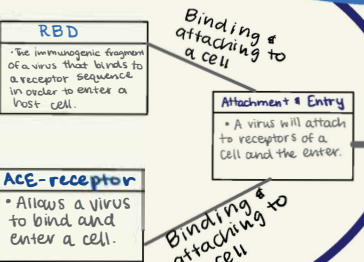 RBD
• The immunogenic fragment
of a virus that binds to
a receptor sequence
in order to enter a
host cell.
Binding &
attaching to
a cell
Attachment & Entry
• A virus will attach
to receptors of a
cell and the enter.
ACE-receptor
• Allows a virus
to bind and
enter a cell.
Binding &
attaching to
cell